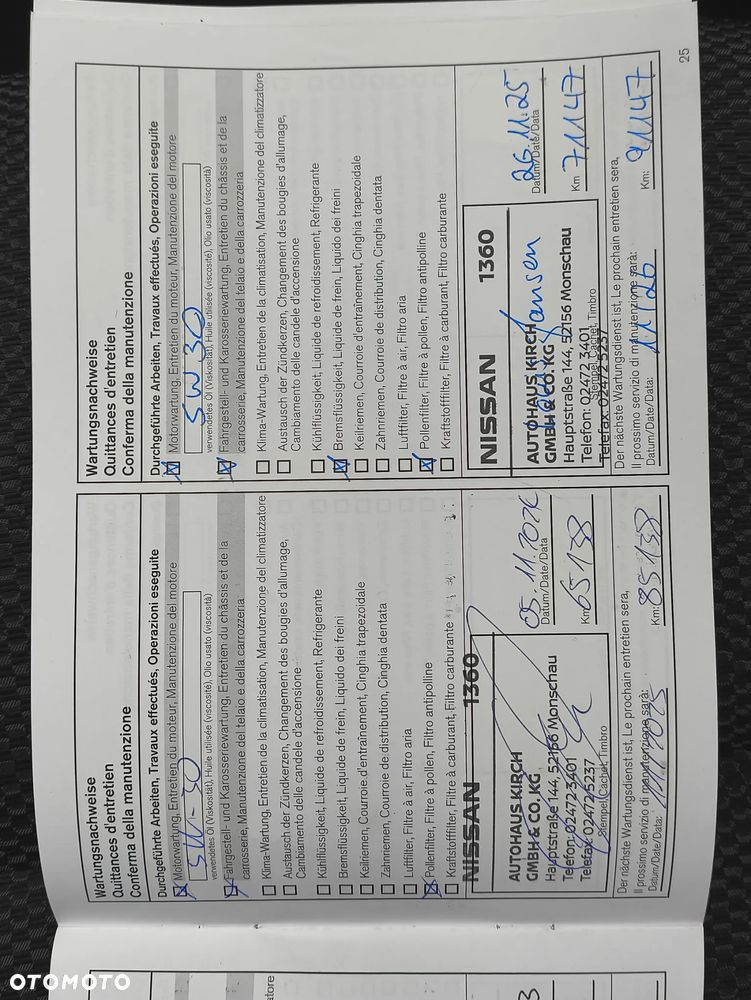 Wartungsnachweise
Quittances d'entretien
Conferma della manutenzione
Durchgeführte Arbeiten, Travaux effectués, Operazioni eseguite
Motorwartung, Entretien du moteur, Manutenzione del motore
5W-30
verwendetes Öl (Viskosität), Huile utilisée (viscosité), Olio usato (viscosità)
Fahrgestell- und Karosseriewartung, Entretien du châssis et de la
carrosserie, Manutenzione del telaio e della carrozzeria
Klima-Wartung, Entretien de la climatisation, Manutenzione del climatizzatore
Austausch der Zündkerzen, Changement des bougies d'allumage,
Cambiamento delle candele d'accensione
Kühlflüssigkeit, Liquide de refroidissement, Refrigerante
Bremsflüssigkeit, Liquide de frein, Liquido dei freini
Keilriemen, Courroie d'entraînement, Cinghia trapezoidale
Zahnriemen, Courroie de distribution, Cinghia dentata
Luftfilter, Filtre à air, Filtro aria
Pollenfilter, Filtre à pollen, Filtro antipolline
Kraftstofffilter, Filtre à carburant, Filtro carburante
NISSAN 1360
AUTOHAUS KIRCH
GMBH & CO. KG
Hauptstraße 144, 52156 Monschau
Telefon: 02472 3401
Telefax: 02472 5237
Stempel, Cachet, Timbro
05.11.2024
Datum/Date/Data
Km 65138
Der nächste Wartungsdienst ist, Le prochain entretien sera,
Il prossimo servizio di manutenzione sarà:
Datum/Date/Data:
Km: 85138
Wartungsnachweise
Quittances d'entretien
Conferma della manutenzione
Durchgeführte Arbeiten, Travaux effectués, Operazioni eseguite
Motorwartung, Entretien du moteur, Manutenzione del motore
5W30
verwendetes Öl (Viskosität), Huile utilisée (viscosité), Olio usato (viscosità)
Fahrgestell- und Karosseriewartung, Entretien du châssis et de la
carrosserie, Manutenzione del telaio e della carrozzeria
Klima-Wartung, Entretien de la climatisation, Manutenzione del climatizzatore
Austausch der Zündkerzen, Changement des bougies d'allumage,
Cambiamento delle candele d'accensione
Kühlflüssigkeit, Liquide de refroidissement, Refrigerante
Bremsflüssigkeit, Liquide de frein, Liquido dei freini
Keilriemen, Courroie d'entraînement, Cinghia trapezoidale
Zahnriemen, Courroie de distribution, Cinghia dentata
Luftfilter, Filtre à air, Filtro aria
Pollenfilter, Filtre à pollen, Filtro antipolline
Kraftstofffilter, Filtre à carburant, Filtro carburante
NISSAN 1360
AUTOHAUS KIRCH
GMBH & CO. KG
Jansen
Hauptstraße 144, 52156 Monschau
Telefon: 02472 3401
Telefax: 02472 5237
Stempel, Cachet, Timbro
26.11.25
Datum/Date/Data
Km 71147
Der nächste Wartungsdienst ist, Le prochain entretien sera,
Il prossimo servizio di manutenzione sarà:
Datum/Date/Data: 11/26
Km: 91147
25
OTOMOTO